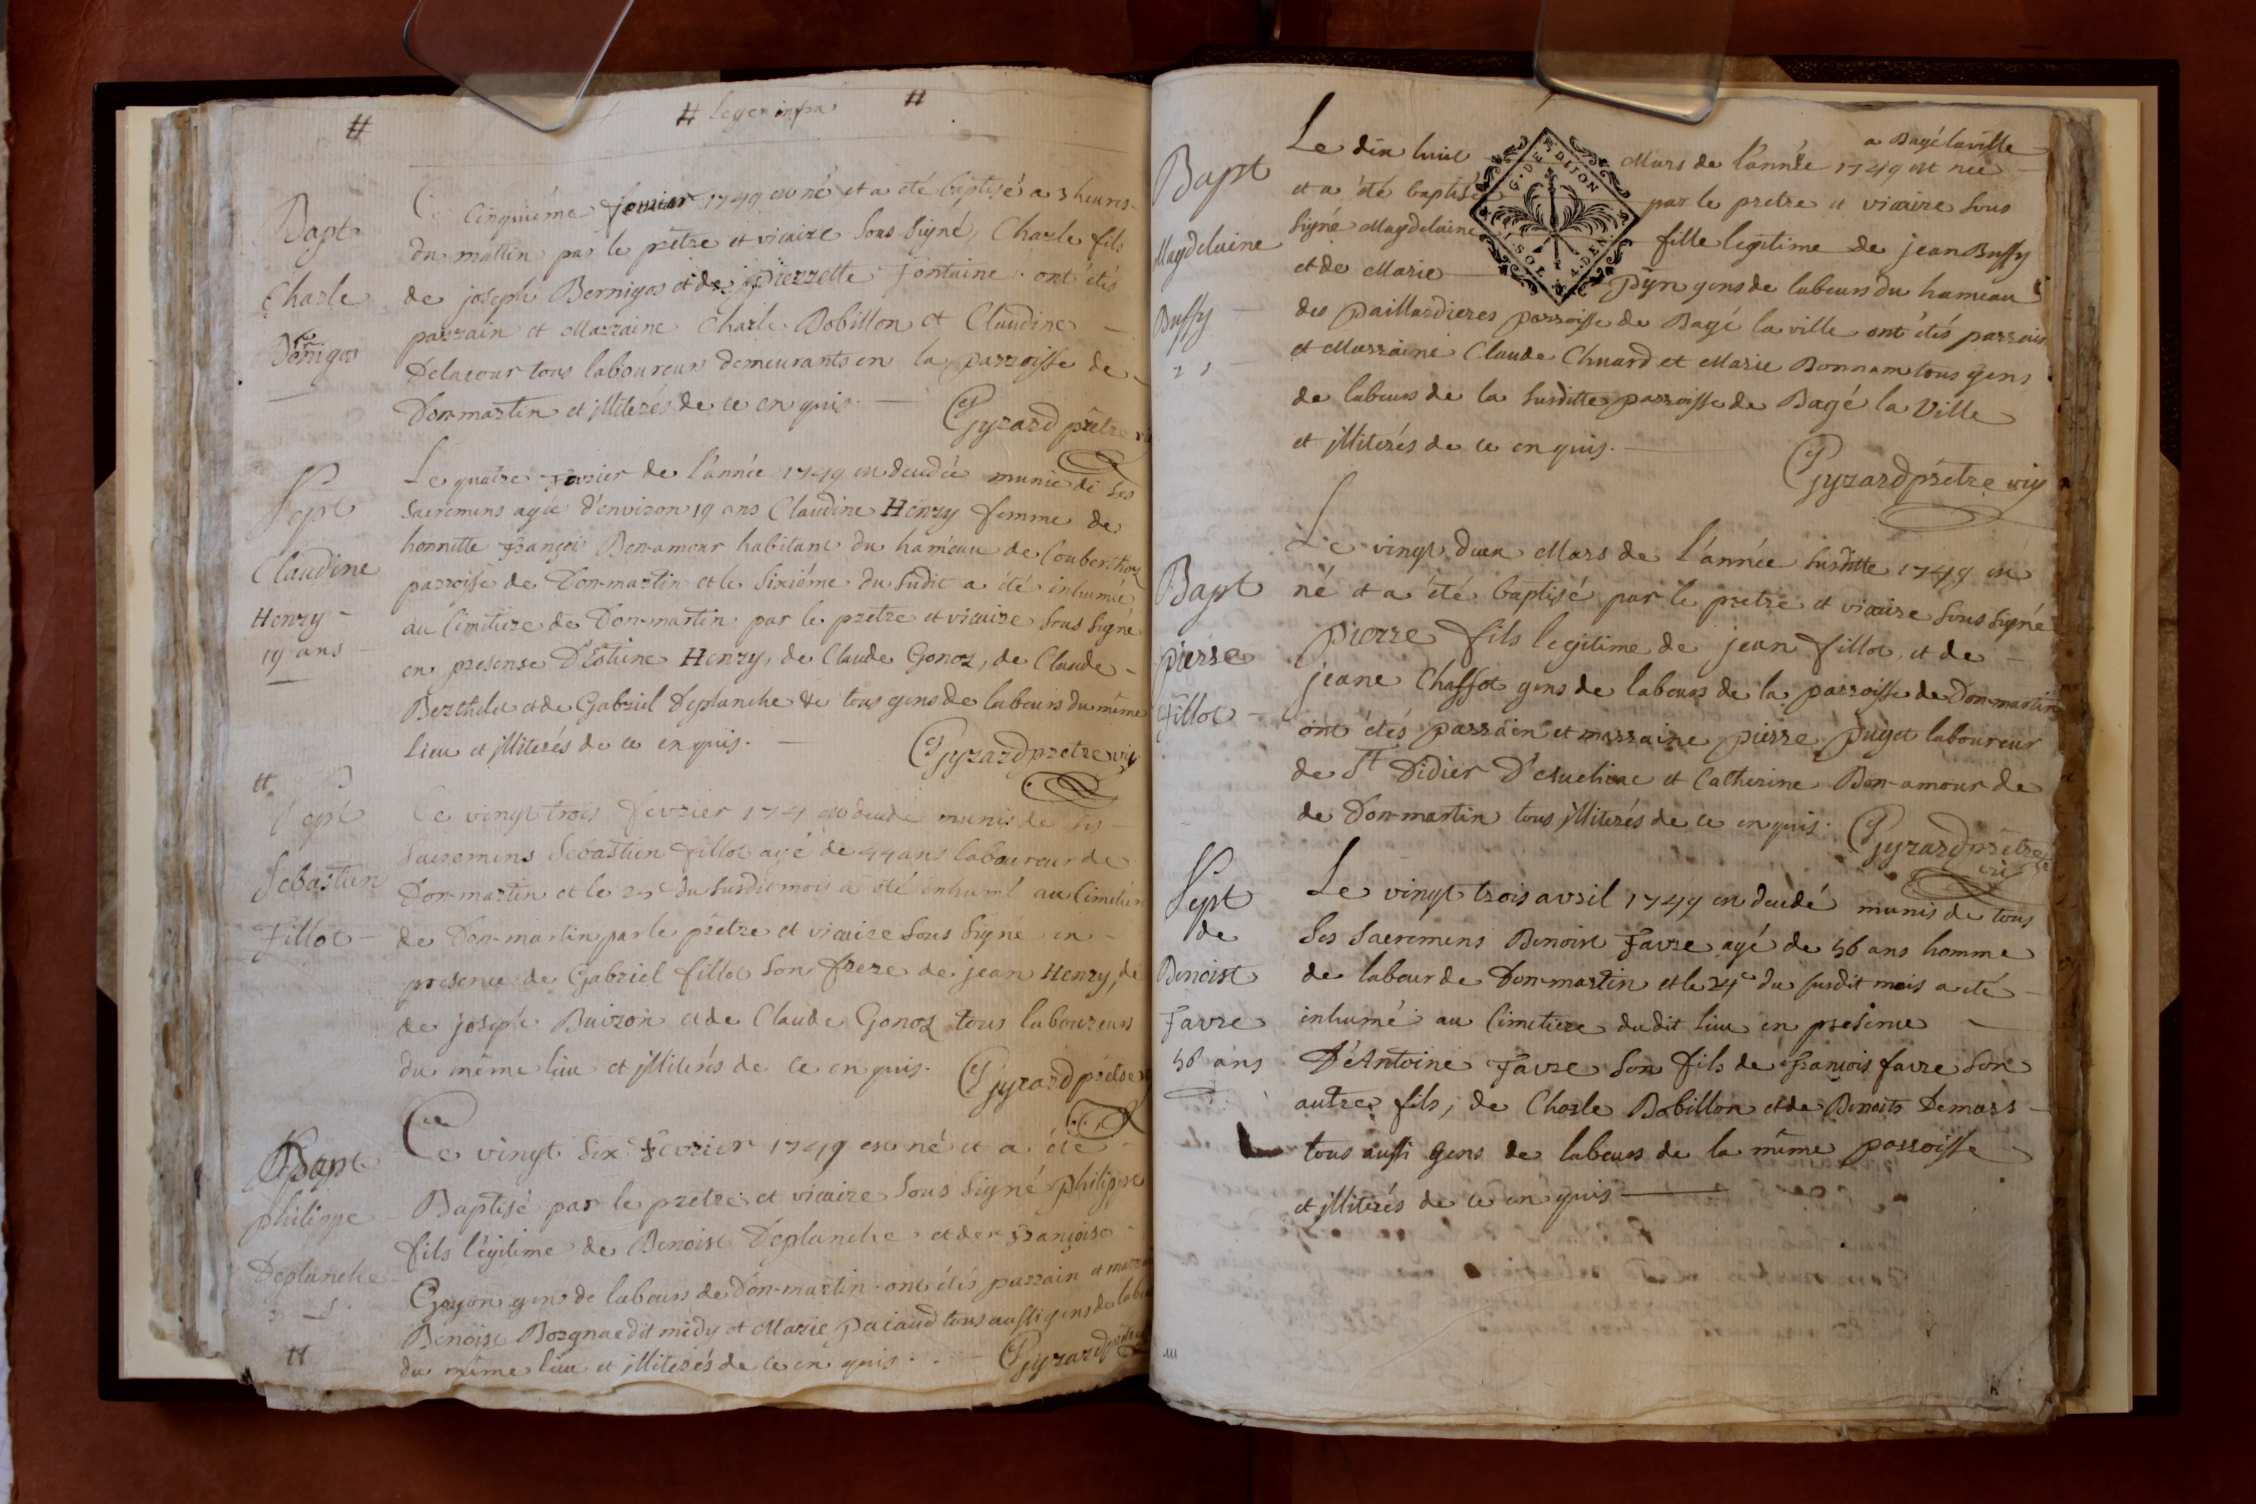 # # leger infra #
Bapt
Charle
Bernigos
Ce Cinquiéme 1749 est né et a été baptisé a 3 heures
du mattin par le prêtre et vicaire Sous Signé, Charle fils
de joseph Bernigos et de pierrette Fontaine. ont étés
parrain et Marraine Charle Bobillon et Claudine
Delacour tous laboureurs demeurants en la parroisse de
Don-martin et illiterés de ce enquis. Gyrard prêtre
Sept
Claudine
Henry
19 ans
Le quatre Fevrier de l'année 1749 est decedée munie de Ses
Sacremens agée d'environ 19 ans Claudine Henry femme de
honnette François Bon-amour habitant du hameau de
parroisse de Don-martin et le Sixiéme du Sudit a été inhumée
au Cimetiere de Don-martin par le pretre et vicaire Sous Signé
en presense D'Estiene Henry, de Claude Gonod, de Claude
Berthelet et de Gabriel Deplanche tous gens de labeurs du même
Lieu et illiterés de ce enquis. Gyrard pretre vic
Sept
Sebastien
Fillot
Le vingt trois fevrier 174 est decedé munis de Ses
Sacremens Sebastien fillot agé de 44 ans laboureur de
Don-martin et le du Susdit mois a été inhumé au Cimetiere
de Don-martin par le prêtre et vicaire Sous Signé en
presence de Gabriel fillot Son frere de jean Henry, de
de joseph Buiron et de Claude Gonod tous laboureurs
du même lieu et illiterés de ce enquis. Gyrard prêtre
Bapt
philippe
Deplanche
Ce vingt Six Fevrier 1749 est né et a été
Baptisé par le pretre et vicaire Sous Signé philippe
fils légitime de Benoist Deplanche et de Françoise
Goyon gens de labeurs de Don-martin. ont étés parrain et
Benoist dit médy et Marie Paiaud tous aussi gens de
du même lieu et illiterés de ce enquis. Gyrard
Bapt
Magdelaine
Buffy
a Bagé la ville
Le dix huit Mars de l'année 1749 est née
et a été baptisé par le pretre et vicaire Sous
Signé Magdelaine fille legitime de jean Buffy
et de Marie Pyn gens de labeurs du hameau
des paillardieres parroisse de Bagé la ville ont étés parrain
et Marraine Claude Chuard et Marie Bonnam tous gens
de labeurs de la Susditte parroisse de Bagé la Ville
et illiterés de ce enquis.
Gyrard prêtre vic
G. DE DIJON
Bapt
pierre
fillot
Le vingt deux Mars de l'année Susditte 1749 est
né et a été baptisé par le pretre et vicaire Sous Signé
pierre fils legitime de jean fillot et de
jeane Chassot gens de labours de la parroisse de Don-martin
ont étés parrain et marraine pierre puget laboureur
de St Didier et Catherine Bon-amour de
de Don-martin tous illiterés de ce enquis. Gyrard prêtre
vic
Sept
de
Benoist
Favre
56 ans
Le vingt trois avril 1749 est decedé munis de tous
Ses Sacremens Benoist Favre agé de 56 ans homme
de labour de Don-martin et le 24e du susdit mois a été
inhumé au Cimetiere dudit Lieu en presence
D'Antoine Favre Son fils de françois favre Son
autre fils, de Charle Bobillon et de Benoits Demars
tous aussi gens de labeurs de la même parroisse
et illiterés de ce enquis